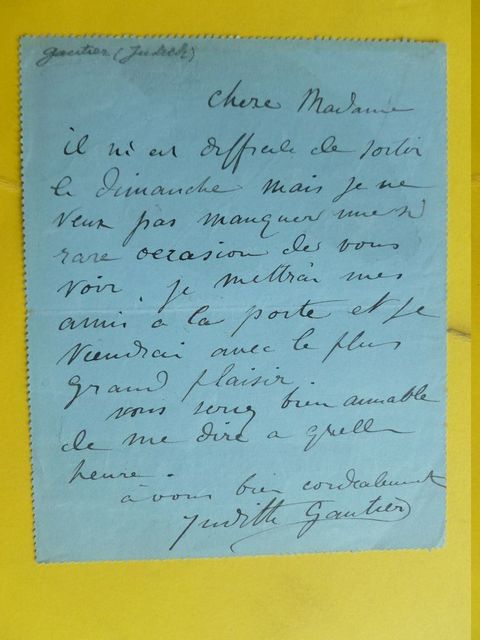 Gautier (Judith)
chere Madame
il m'est difficile de sortir
le dimanche mais je ne
veux pas manquer une si
rare occasion de vous
voir. je mettrai mes
amis a la porte et je
viendrai avec le plus
grand plaisir.
vous serez bien aimable
de me dire a quelle
heure.
à vous bien cordialement
Judith Gautier